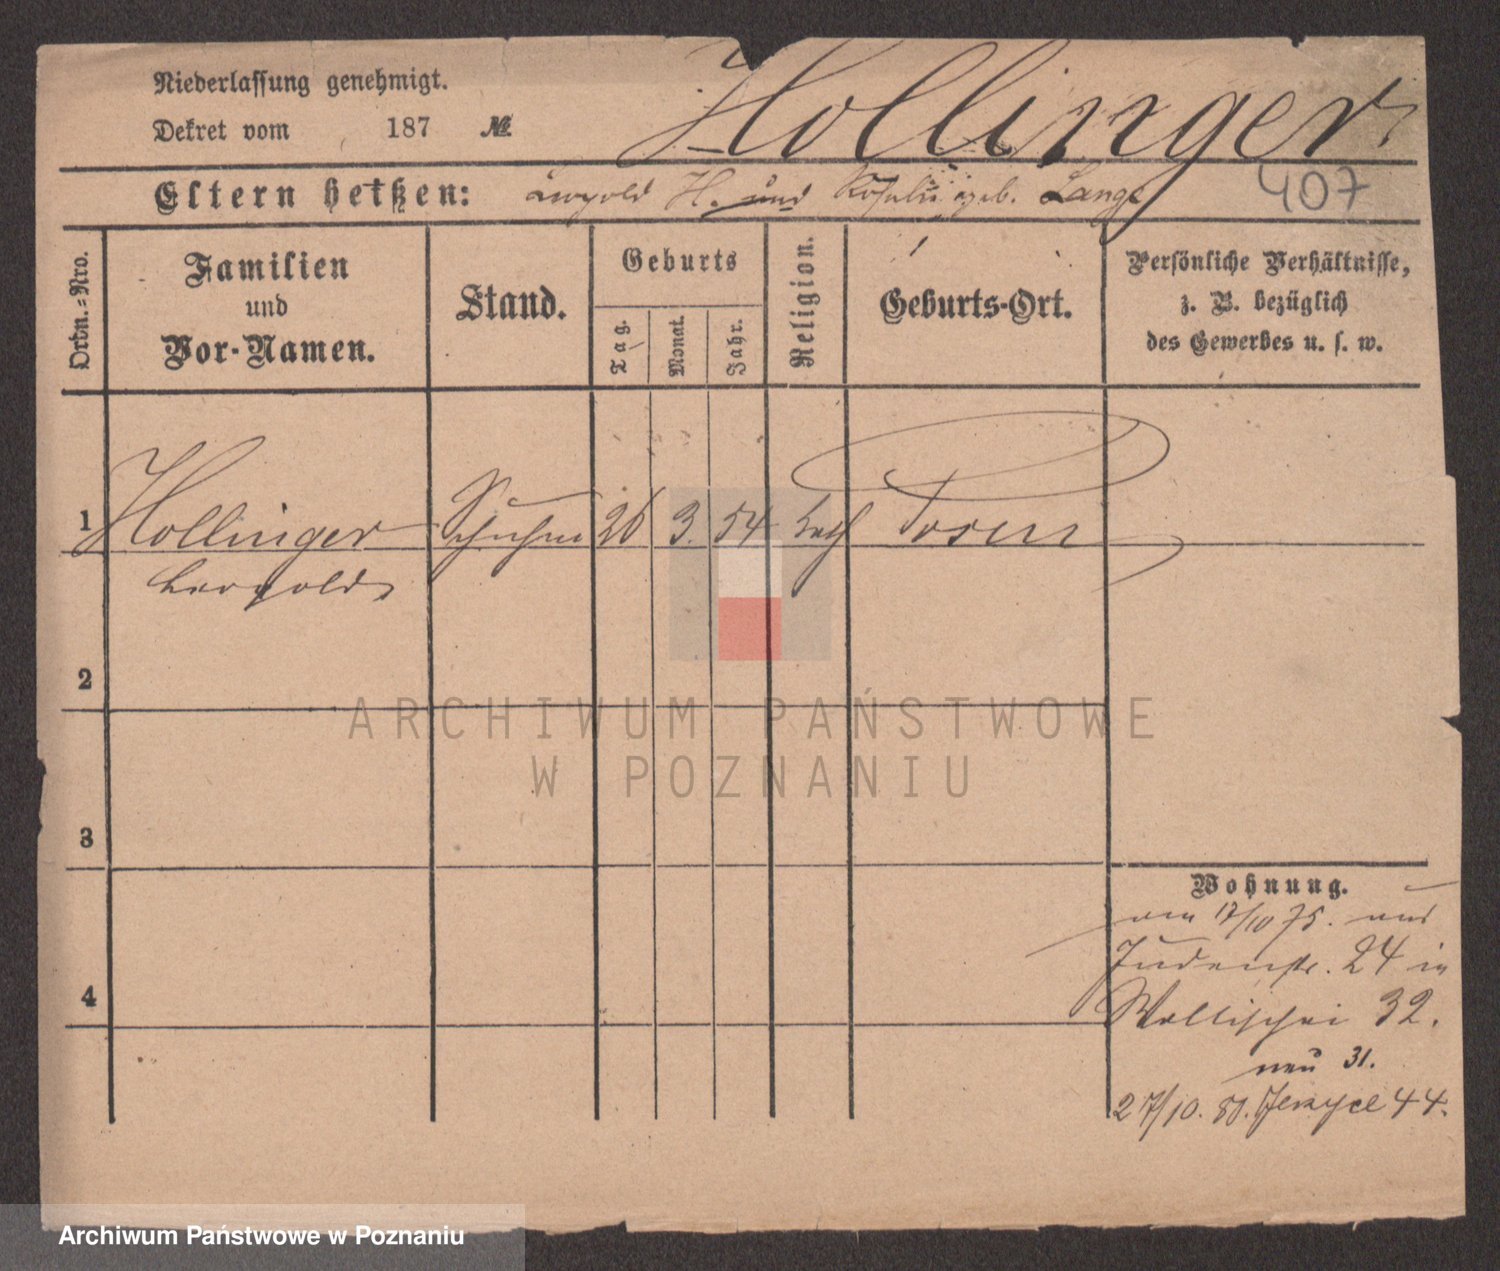 Niederlassung genehmigt.
Dekret vom 187 №
Hollinger
Eltern heißen: Leopold H. und Rosalie geb. Lange
407
Ordn.-Nro.
Familien
und
Vor-Namen.
Stand.
Geburts
Tag.
Monat.
Jahr.
Religion.
Geburts-Ort.
Persönliche Verhältnisse,
z. B. bezüglich
des Gewerbes u. s. w.
1 Hollinger 26 3. 54 kath Posen
Leopold
2
3
4
Wohnung.
17/10 75.
Judenstr. 24 in
Wallischei 32.
neu 31.
27/10. 80. Jerzyce 44.
ARCHIWUM PAŃSTWOWE
W POZNANIU
Archiwum Państwowe w Poznaniu